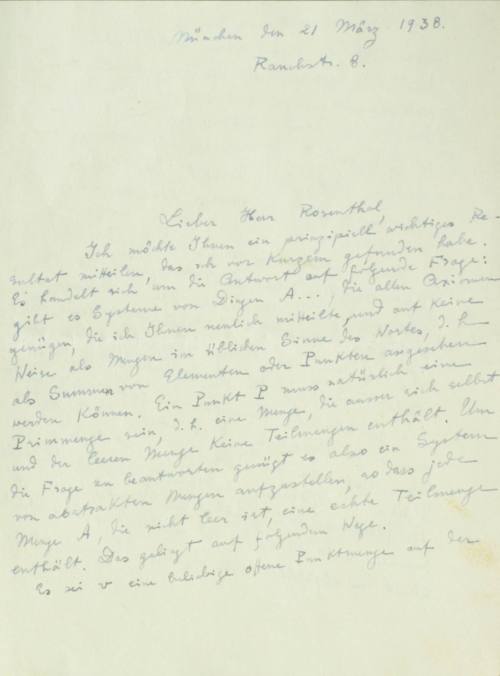 München den 21 März 1938.
Rauchstr. 8.
Lieber Herr Rosenthal,
Ich möchte Ihnen ein prinzipiell wichtiges Re-
sultat mitteilen, das ich vor Kurzem gefunden habe.
Es handelt sich um die Antwort auf folgende Frage:
gibt es Systeme von Dingen A..., die allen Axiomen
genügen, die ich Ihnen neulich mitteilte, und auf keine
Weise als Mengen im üblichen Sinne des Wortes, d. h.
als Summen von Elementen oder Punkten angesehen
werden können. Ein Punkt P muss natürlich eine
Primmenge sein, d. h. eine Menge, die ausser sich selbst
und der leeren Menge keine Teilmengen enthält. Um
die Frage zu beantworten genügt es also ein System
von abstrakten Mengen aufzustellen, so dass jede
Menge A, die nicht leer ist, eine echte Teilmenge
enthält. Das gelingt auf folgendem Wege.
Es sei v eine beliebige offene Punktmenge auf der